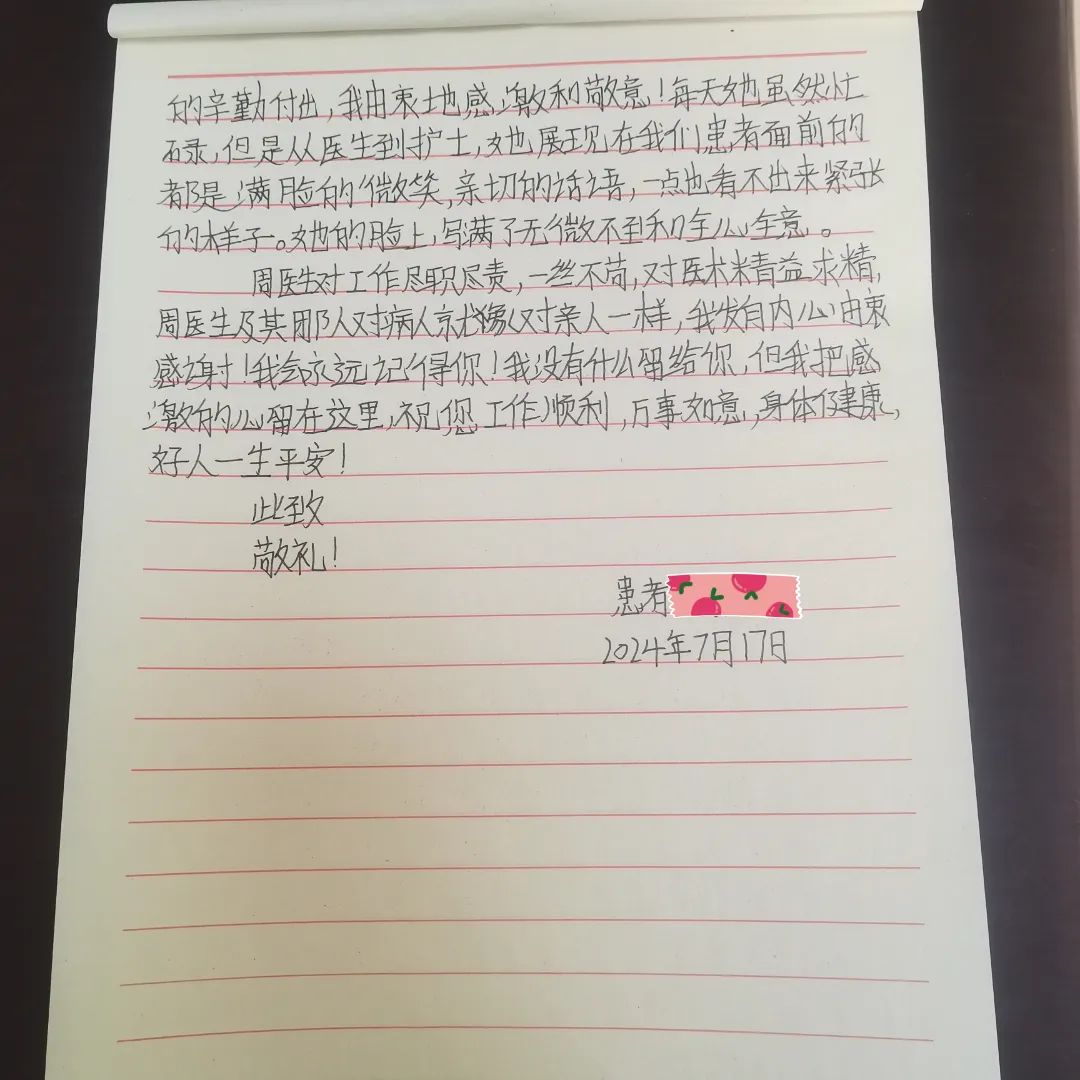 的辛勤付出，我由衷地感激和敬意！每天她虽然忙
碌，但是从医生到护士，她展现在我们患者面前的
都是满脸的微笑，亲切的话语，一点也看不出来紧张
的样子。她的脸上，写满了无微不至和全心全意。
周医生对工作尽职尽责，一丝不苟，对医术精益求精，
周医生及其团队对病人就像对亲人一样，我发自内心由衷
感谢！我会永远记得你！我没有什么留给你，但我把感
激的心留在这里，祝您工作顺利，万事如意，身体健康，
好人一生平安！
此致
敬礼！
患者
2024年7月17日